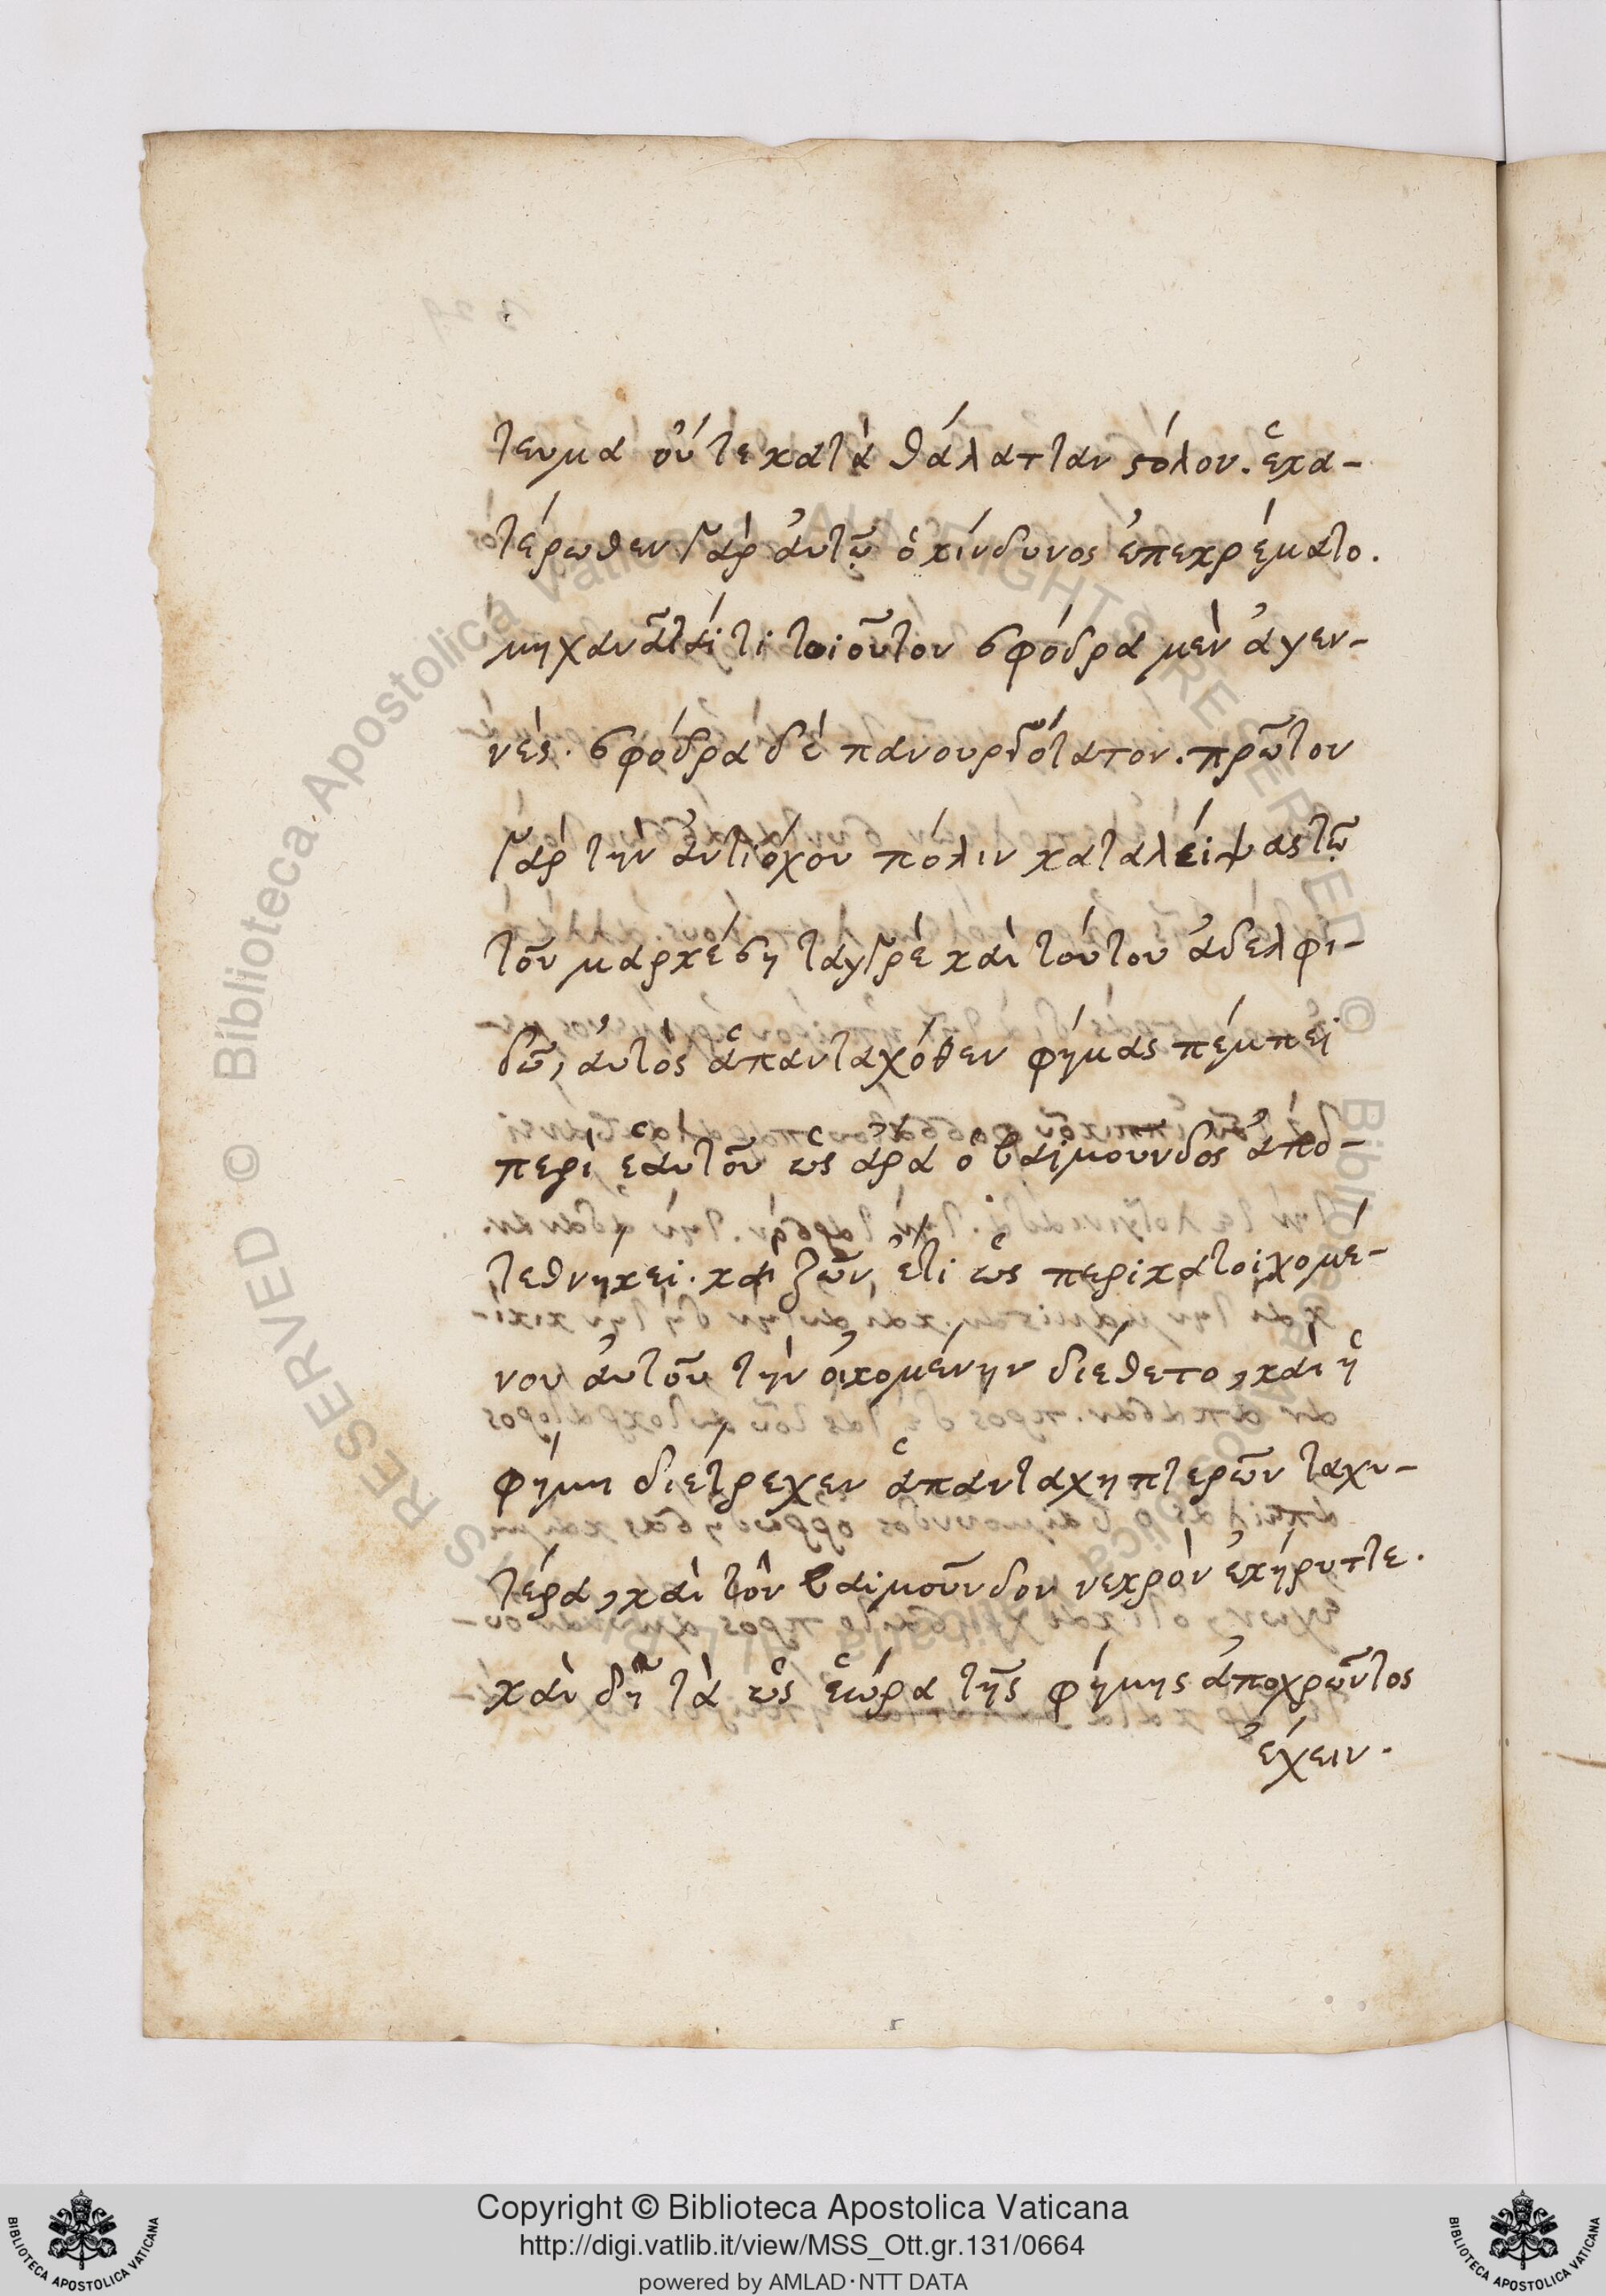 τευμα οὔτε κατὰ θάλατταν στόλον. ἑκα-
τέρωθεν γὰρ ἀυτῷ ὁ κίνδυνος ἐπεκρέματο.
μηχανᾶταί τι τοιοῦτον σφόδρα μὲν ἀγεν-
νές. σφόδρα δὲ πανουργότατον. πρῶτον
γὰρ τὴν ἀντιόχου πόλιν καταλείψας τῷ
τοῦ μαρκέση ταγγρὲ καὶ τούτου ἀδελφι-
δῶ, ἀυτὸς ἁπανταχόθεν φήμας πέμπει
περὶ ἑαυτοῦ ὡς ἄρα ὁ βαϊμοῦνδος ἀπο-
τεθνήκει. καὶ ζῶν ἔτι ὡς περικατοιχομέ-
νου ἀυτοῦ τὴν ὀικομένην διέθετο, καὶ ἡ
φήμη διέτρεχεν ἁπανταχη πτερῶν ταχυ-
τέρα, καὶ τὸν βαϊμοῦνδον νεκρὸν ἐκήρυττε.
καὶ δῆτα ὡς ἑώρα τῆς φήμης ἀποχρῶντος
ἔχειν.
Copyright © Biblioteca Apostolica Vaticana
http://digi.vatlib.it/view/MSS_Ott.gr.131/0664
powered by AMLAD·NTT DATA